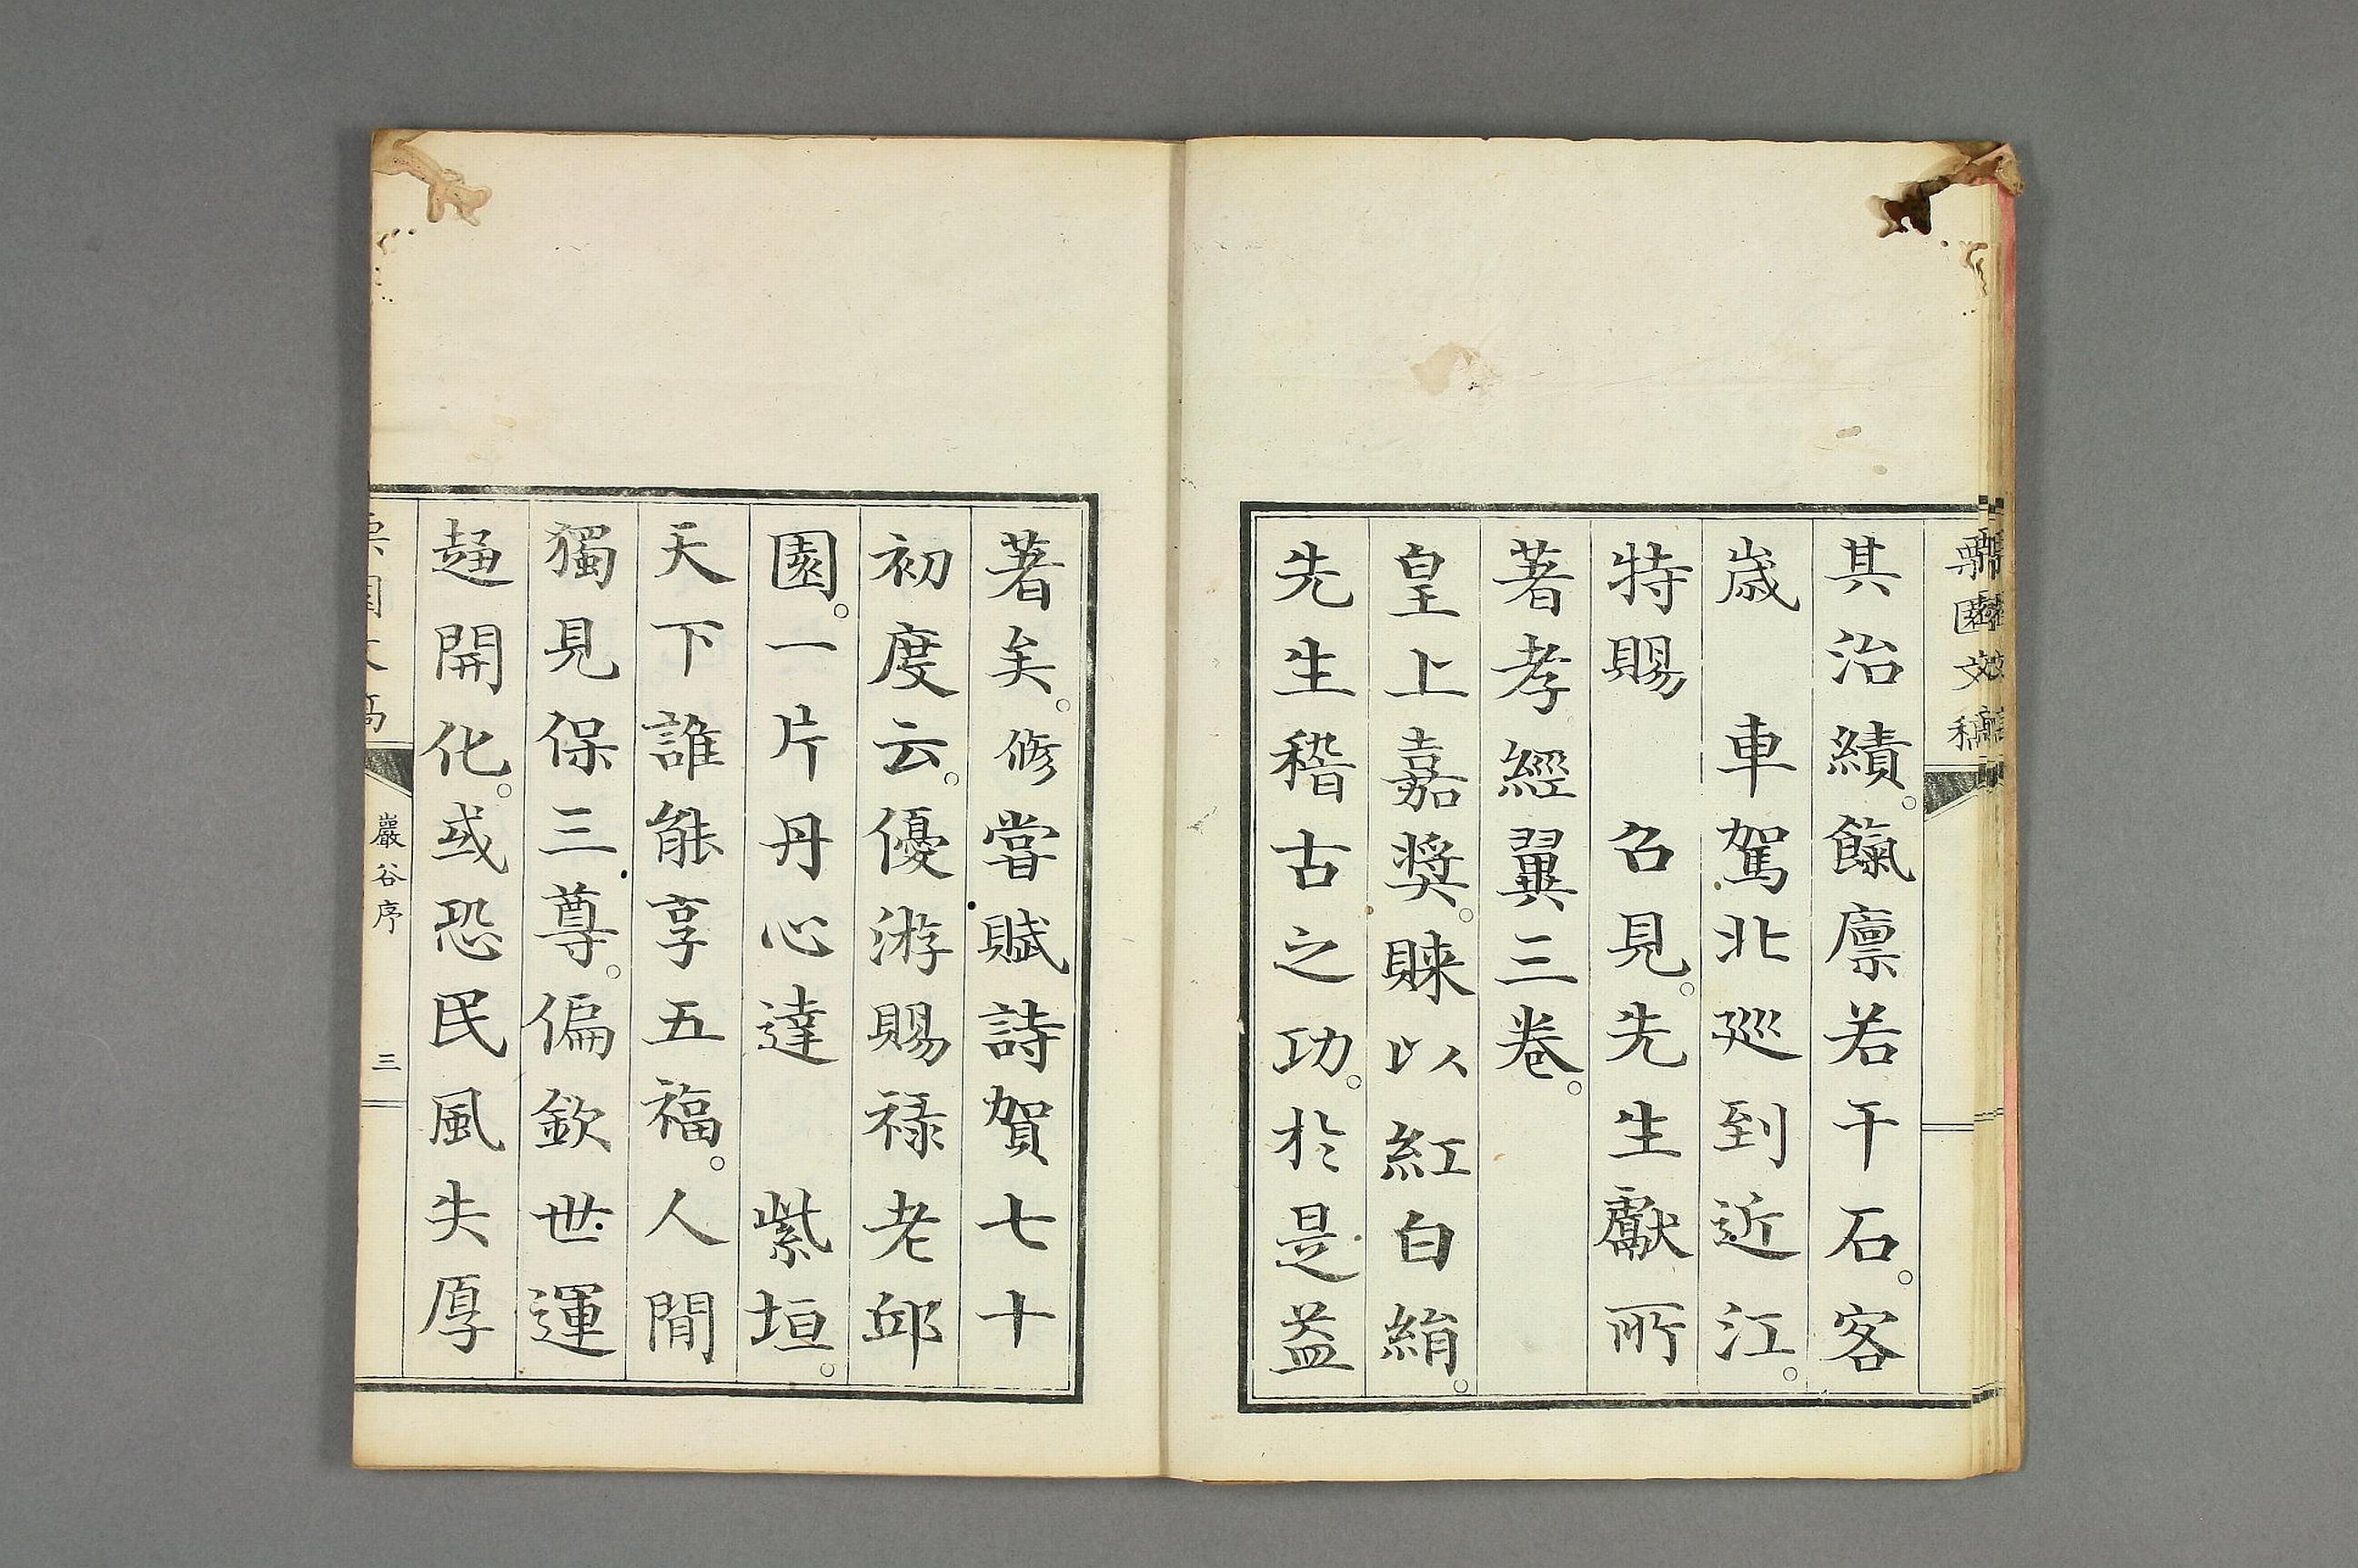 栗園文稿
其治績。餼廩若干石。客
歲　車駕北巡到近江。
特賜　召見。先生獻所
著孝經翼三卷。
皇上嘉奬。賚以紅白絹。
先生稽古之功。於是益
著矣。修嘗賦詩賀七十
初度云。優游賜祿老邱
園。一片丹心達　紫垣。
天下誰能享五福。人間
獨見保三尊。偏欽世運
趨開化。或恐民風失厚
栗園文稿
巖谷序
三